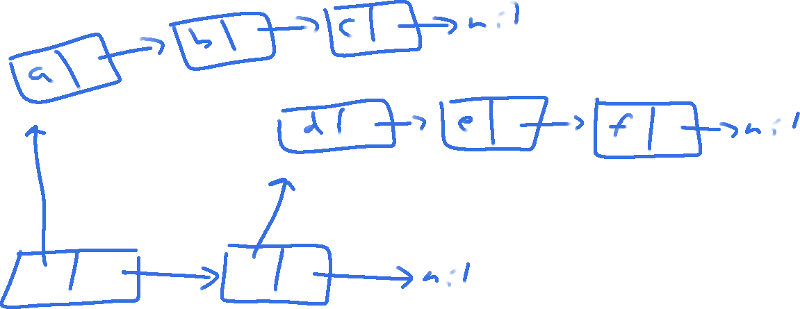 a b c nil
d e f nil
nil